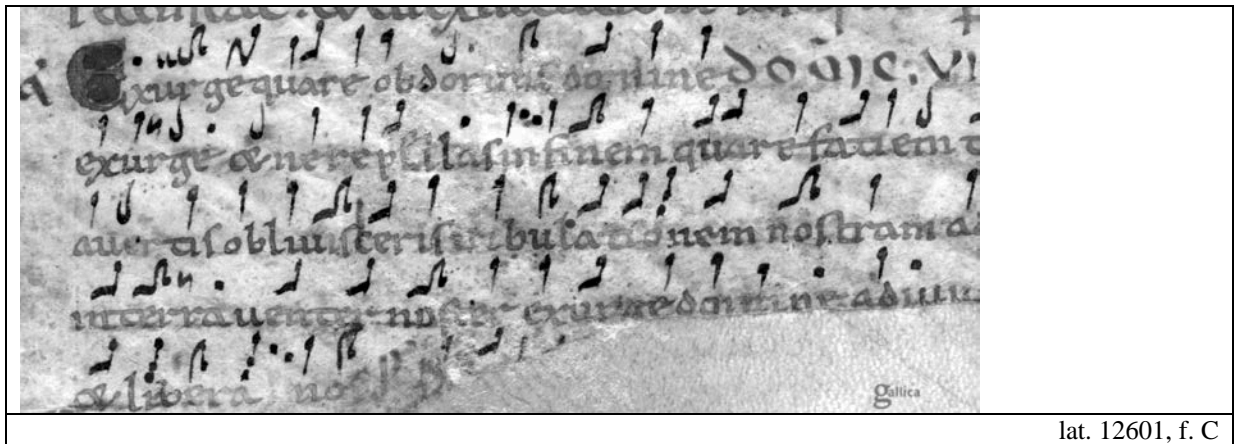 Exurge quare obdormis domine DOM̄IC. VI
exurge & ne repellas in finem quare faciem t
avertis oblivisceris tribulationem nostram ad
in terra venter noster exurge domine adiuv
& libera nos
gallica
lat. 12601, f. C